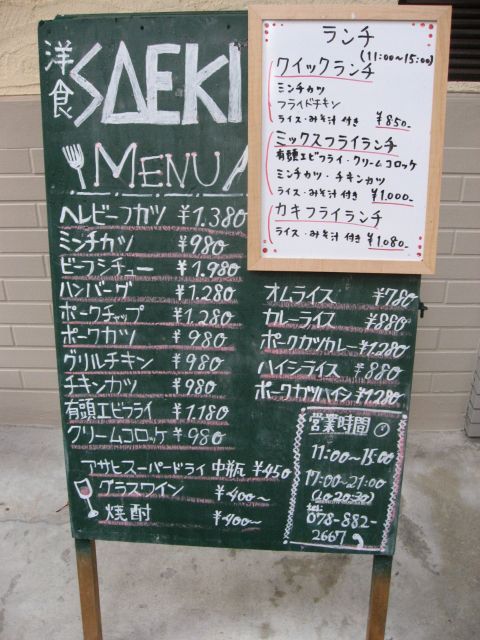 洋食 SAEKI
MENU
ヘレビーフカツ ¥1.380
ミンチカツ ¥980
ビーフシチュー ¥1,980
ハンバーグ ¥1.280
ポークチャップ ¥1.280
ポークカツ ¥980
グリルチキン ¥980
チキンカツ ¥980
有頭エビフライ ¥1.180
クリームコロッケ ¥980
アサヒスーパードライ 中瓶 ¥450
グラスワイン ¥400〜
焼酎 ¥400〜
ランチ
(11:00〜15:00)
クイックランチ
ミンチカツ
フライドチキン
ライス・みそ汁 付き ¥850-
ミックスフライランチ
有頭エビフライ・クリームコロッケ
ミンチカツ・チキンカツ
ライス・みそ汁 付き ¥1.000-
カキフライランチ
ライス・みそ汁 付き ¥1.080-
オムライス ¥780
カレーライス ¥880
ポークカツカレー ¥1.280
ハイシライス ¥880
ポークカツハイシ ¥1280
営業時間
11:00〜15:00
17:00〜21:00
(Lo20:30)
078-882-
2667